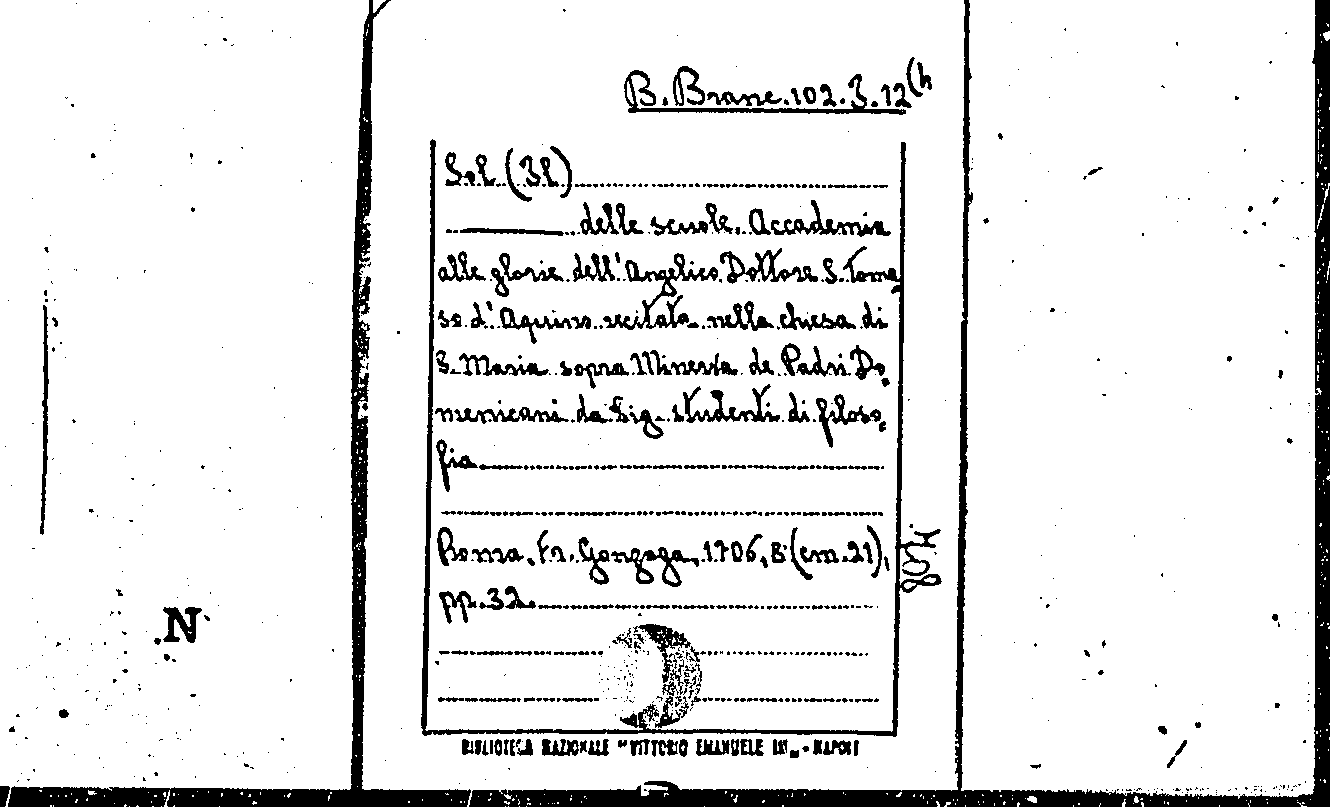 B. Branc. 102.3.12(h
Sol (Il)
delle scuole. Accademia
alle glorie dell'Angelico Dottore S. Toma
so d'Aquino recitata nella chiesa di
S. Maria sopra Minerva de Padri Do
menicani da Sig. studenti di filoso
fia.
Roma, Fr. Gonzaga, 1706, 8 (cm. 21),
pp. 32.
N
BIBLIOTECA NAZIONALE "VITTORIO EMANUELE III" - NAPOLI